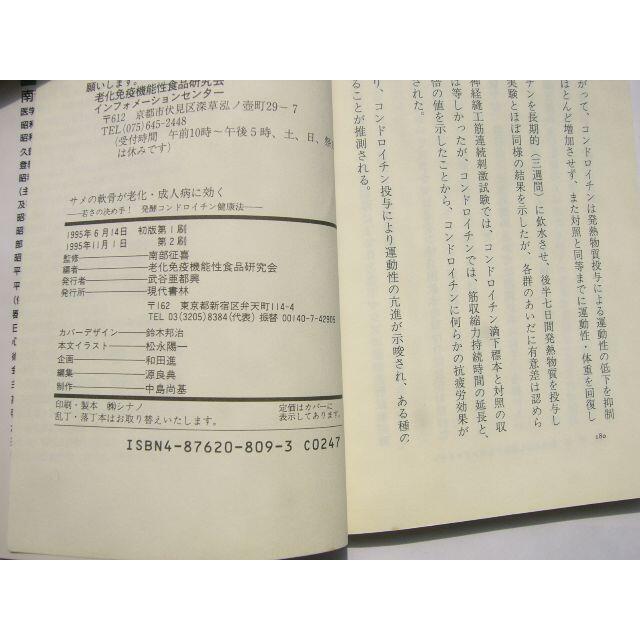 願いします。
老化免疫機能性食品研究会
インフォメーションセンター
〒612 京都市伏見区深草泓ノ壺町29-7
TEL(075)645-2448
(受付時間 午前10時～午後5時、土、日、祭
は休みです)
サメの軟骨が老化・成人病に効く
──若さの決め手! 発酵コンドロイチン健康法──
1995年6月14日 初版第1刷
1995年11月1日 第2刷
監修 南部征喜
編者 老化免疫機能性食品研究会
発行者 武谷都興
発行所 現代書林
〒162 東京都新宿区弁天町114-4
TEL 03(3205)8384(代表) 振替 00140-7-42905
カバーデザイン 鈴木邦治
本文イラスト 松永陽一
企画 和田進
編集 源良典
制作 中島尚基
印刷・製本 ㈱シナノ
乱丁・落丁本はお取り替えいたします。
定価はカバーに
表示してあります。
ISBN4-87620-809-3 C0247
がって、コンドロイチンは発熱物質投与による運動性の低下を抑制
ほとんど増加させず、また対照と同等までに運動性・体重を回復し
チンを長期的(三週間)に飲水させ、後半七日間発熱物質を投与し
実験とほぼ同様の結果を示したが、各群のあいだに有意差は認めら
神経縫工筋連続刺激試験では、コンドロイチン滴下標本と対照の収
は等しかったが、コンドロイチンでは、筋収縮力持続時間の延長と、
倍の値を示したことから、コンドロイチンに何らかの抗疲労効果が
された。
り、コンドロイチン投与により運動性の亢進が示唆され、ある種の
ることが推測される。
180
南
医学
昭和
昭和